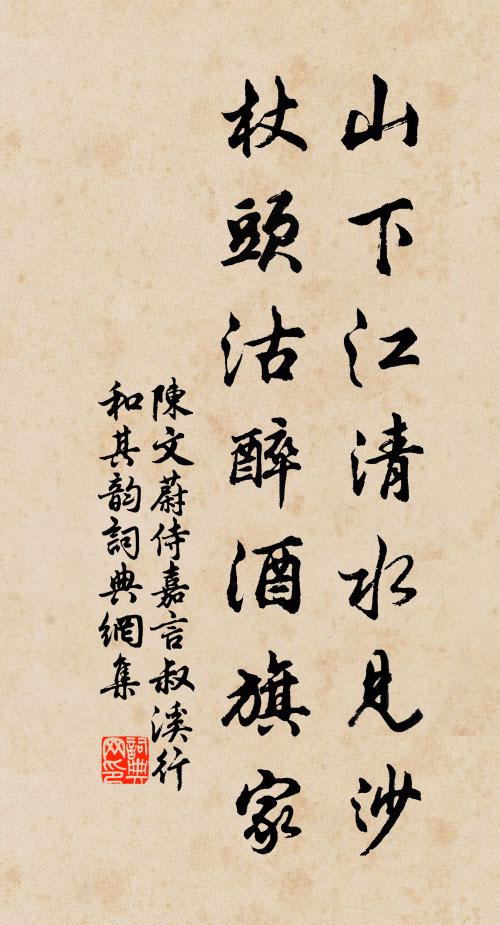 山下江清水見沙
杖頭沽醉酒旗家
陳文蔚侍嘉言叔溪行
和其韵詞典網集
詞典网印